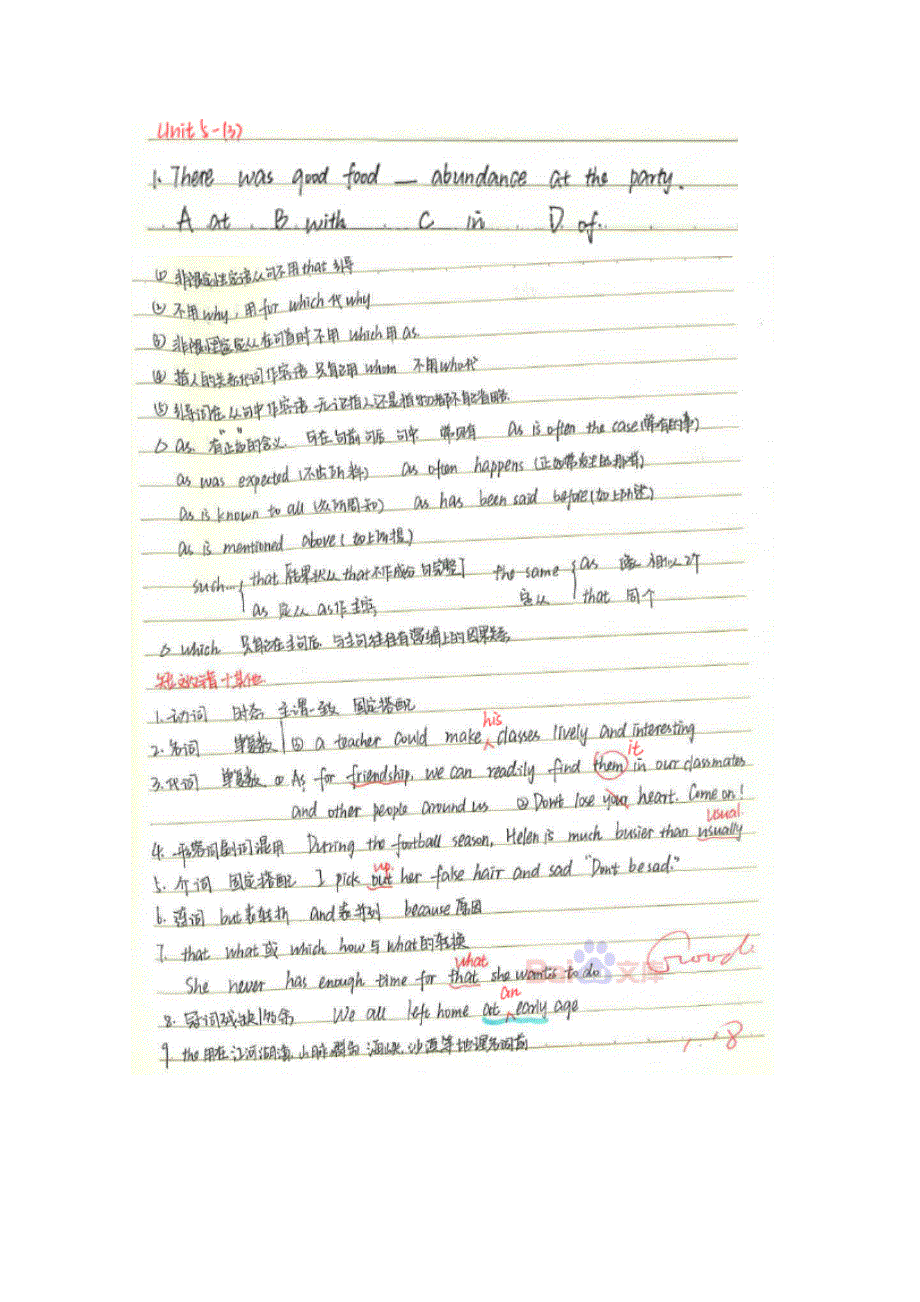 Unit 5-(3)
1. There was good food — abundance at the party.
A at B. with C in D. of
(1) 非限定性定语从句不用that引导
(2) 不用why, 用for which代why
(3) 非限定定从在句首时不用which用as.
(4) 指人的关系代词作宾语只能用whom 不用who代
(5) 引导词在从句中作宾语 无论指人还是指物都不能省略
△ as. 有"正如"的含义 可在句前句后句中 常见有 as is often the case (常有的事)
as was expected (不出所料) as often happens (正如常发生的那样)
as is known to all (众所周知) as has been said before (如上所述)
as is mentioned above (如上所提)
such... that [结果状从that不作成份句完整] the same as 定从 相似2个
as 定从 as作主宾 定从 that 同个
△ which 只能在主句后 与主句往往有逻辑上的因果关系
短文改错十其他
1. 动词 时态 主谓一致 固定搭配
2. 名词 单复数 ① a teacher could make his classes lively and interesting
3. 代词 单复数 ① As for friendship, we can readily find them it in our classmates
and other people around us ② Don't lose your heart. Come on!
4. 形容词副词混用 During the football season, Helen is much busier than usually usual.
5. 介词 固定搭配 I pick out up her false hair and sad "Don't be sad."
6. 连词 but表转折 and表并列 because原因
7. that what或which how与what的转换
She never has enough time for that what she wants to do
Good
8. 冠词残缺/多余 We all left home at an early age
9. the用在江河湖海, 山脉群岛 海峡, 沙漠等地理名词前
Bai 文库